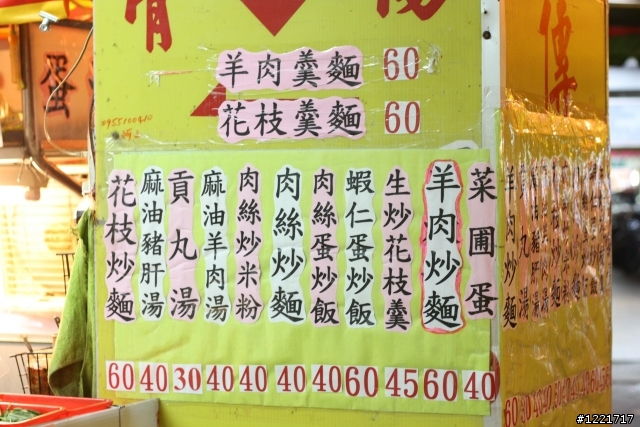 羊肉羹麵 60
花枝羹麵 60
菜圃蛋 40
羊肉炒麵 60
生炒花枝羹 45
蝦仁蛋炒飯 60
肉絲蛋炒飯 40
肉絲炒麵 40
肉絲炒米粉 40
麻油羊肉湯 40
貢丸湯 30
麻油豬肝湯 40
花枝炒麵 60
蛋
#1221717